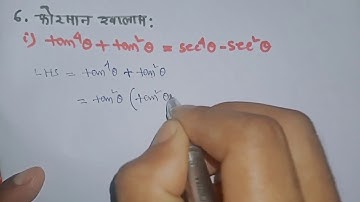 6. प्रमाणित गर्नुहोस् :
i) tan⁴θ + tan²θ = sec⁴θ - sec²θ
LHS = tan⁴θ + tan²θ
= tan²θ (tan²θ